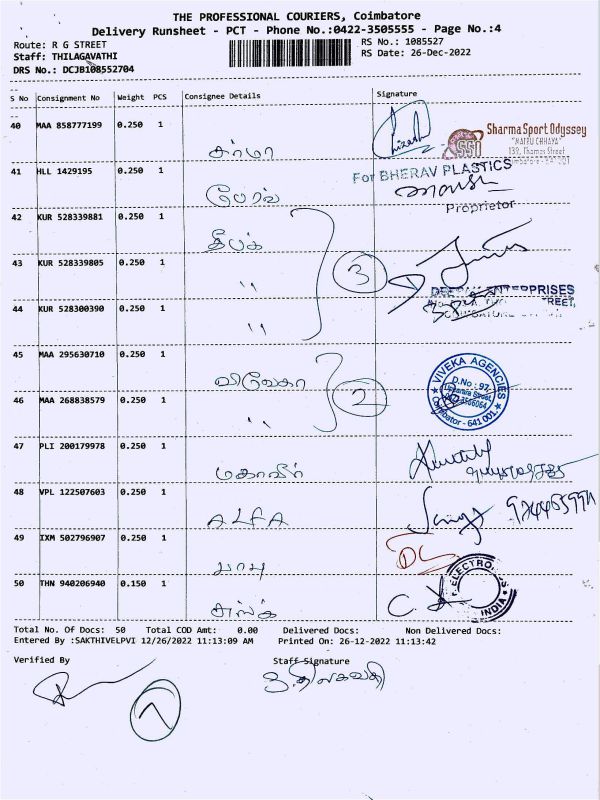 THE PROFESSIONAL COURIERS, Coimbatore
Delivery Runsheet - PCT - Phone No.:0422-3505555 - Page No.:4
Route: R G STREET
RS No.: 1085527
Staff: THILAGAVATHI
RS Date: 26-Dec-2022
DRS No.: DCJB108552704
S No Consignment No Weight PCS Consignee Details Signature
40 MAA 858777199 0.250 1
Sharma Sport Odyssey
"MATRU CHHAYA"
139, Thomas Street
SSO
சர்மா
41 HLL 1429195 0.250 1
For BHERAV PLASTICS
Proprietor
42 KUR 528339881 0.250 1
தீபக்
43 KUR 528339805 0.250 1
" 3
ENTERPRISES
44 KUR 528300390 0.250 1
"
45 MAA 295630710 0.250 1
விவேகா
VIVEKA AGENCIES
D.No : 97,
Coimbator - 641 001
46 MAA 268838579 0.250 1
" 2
47 PLI 200179978 0.250 1
மகாவீர்
48 VPL 122507603 0.250 1
ALFA
49 IXM 502796907 0.250 1
பாபு
50 THN 940206940 0.150 1
INDIA
Total No. Of Docs: 50 Total COD Amt: 0.00 Delivered Docs: Non Delivered Docs:
Entered By :SAKTHIVELPVI 12/26/2022 11:13:09 AM Printed On: 26-12-2022 11:13:42
Verified By Staff Signature